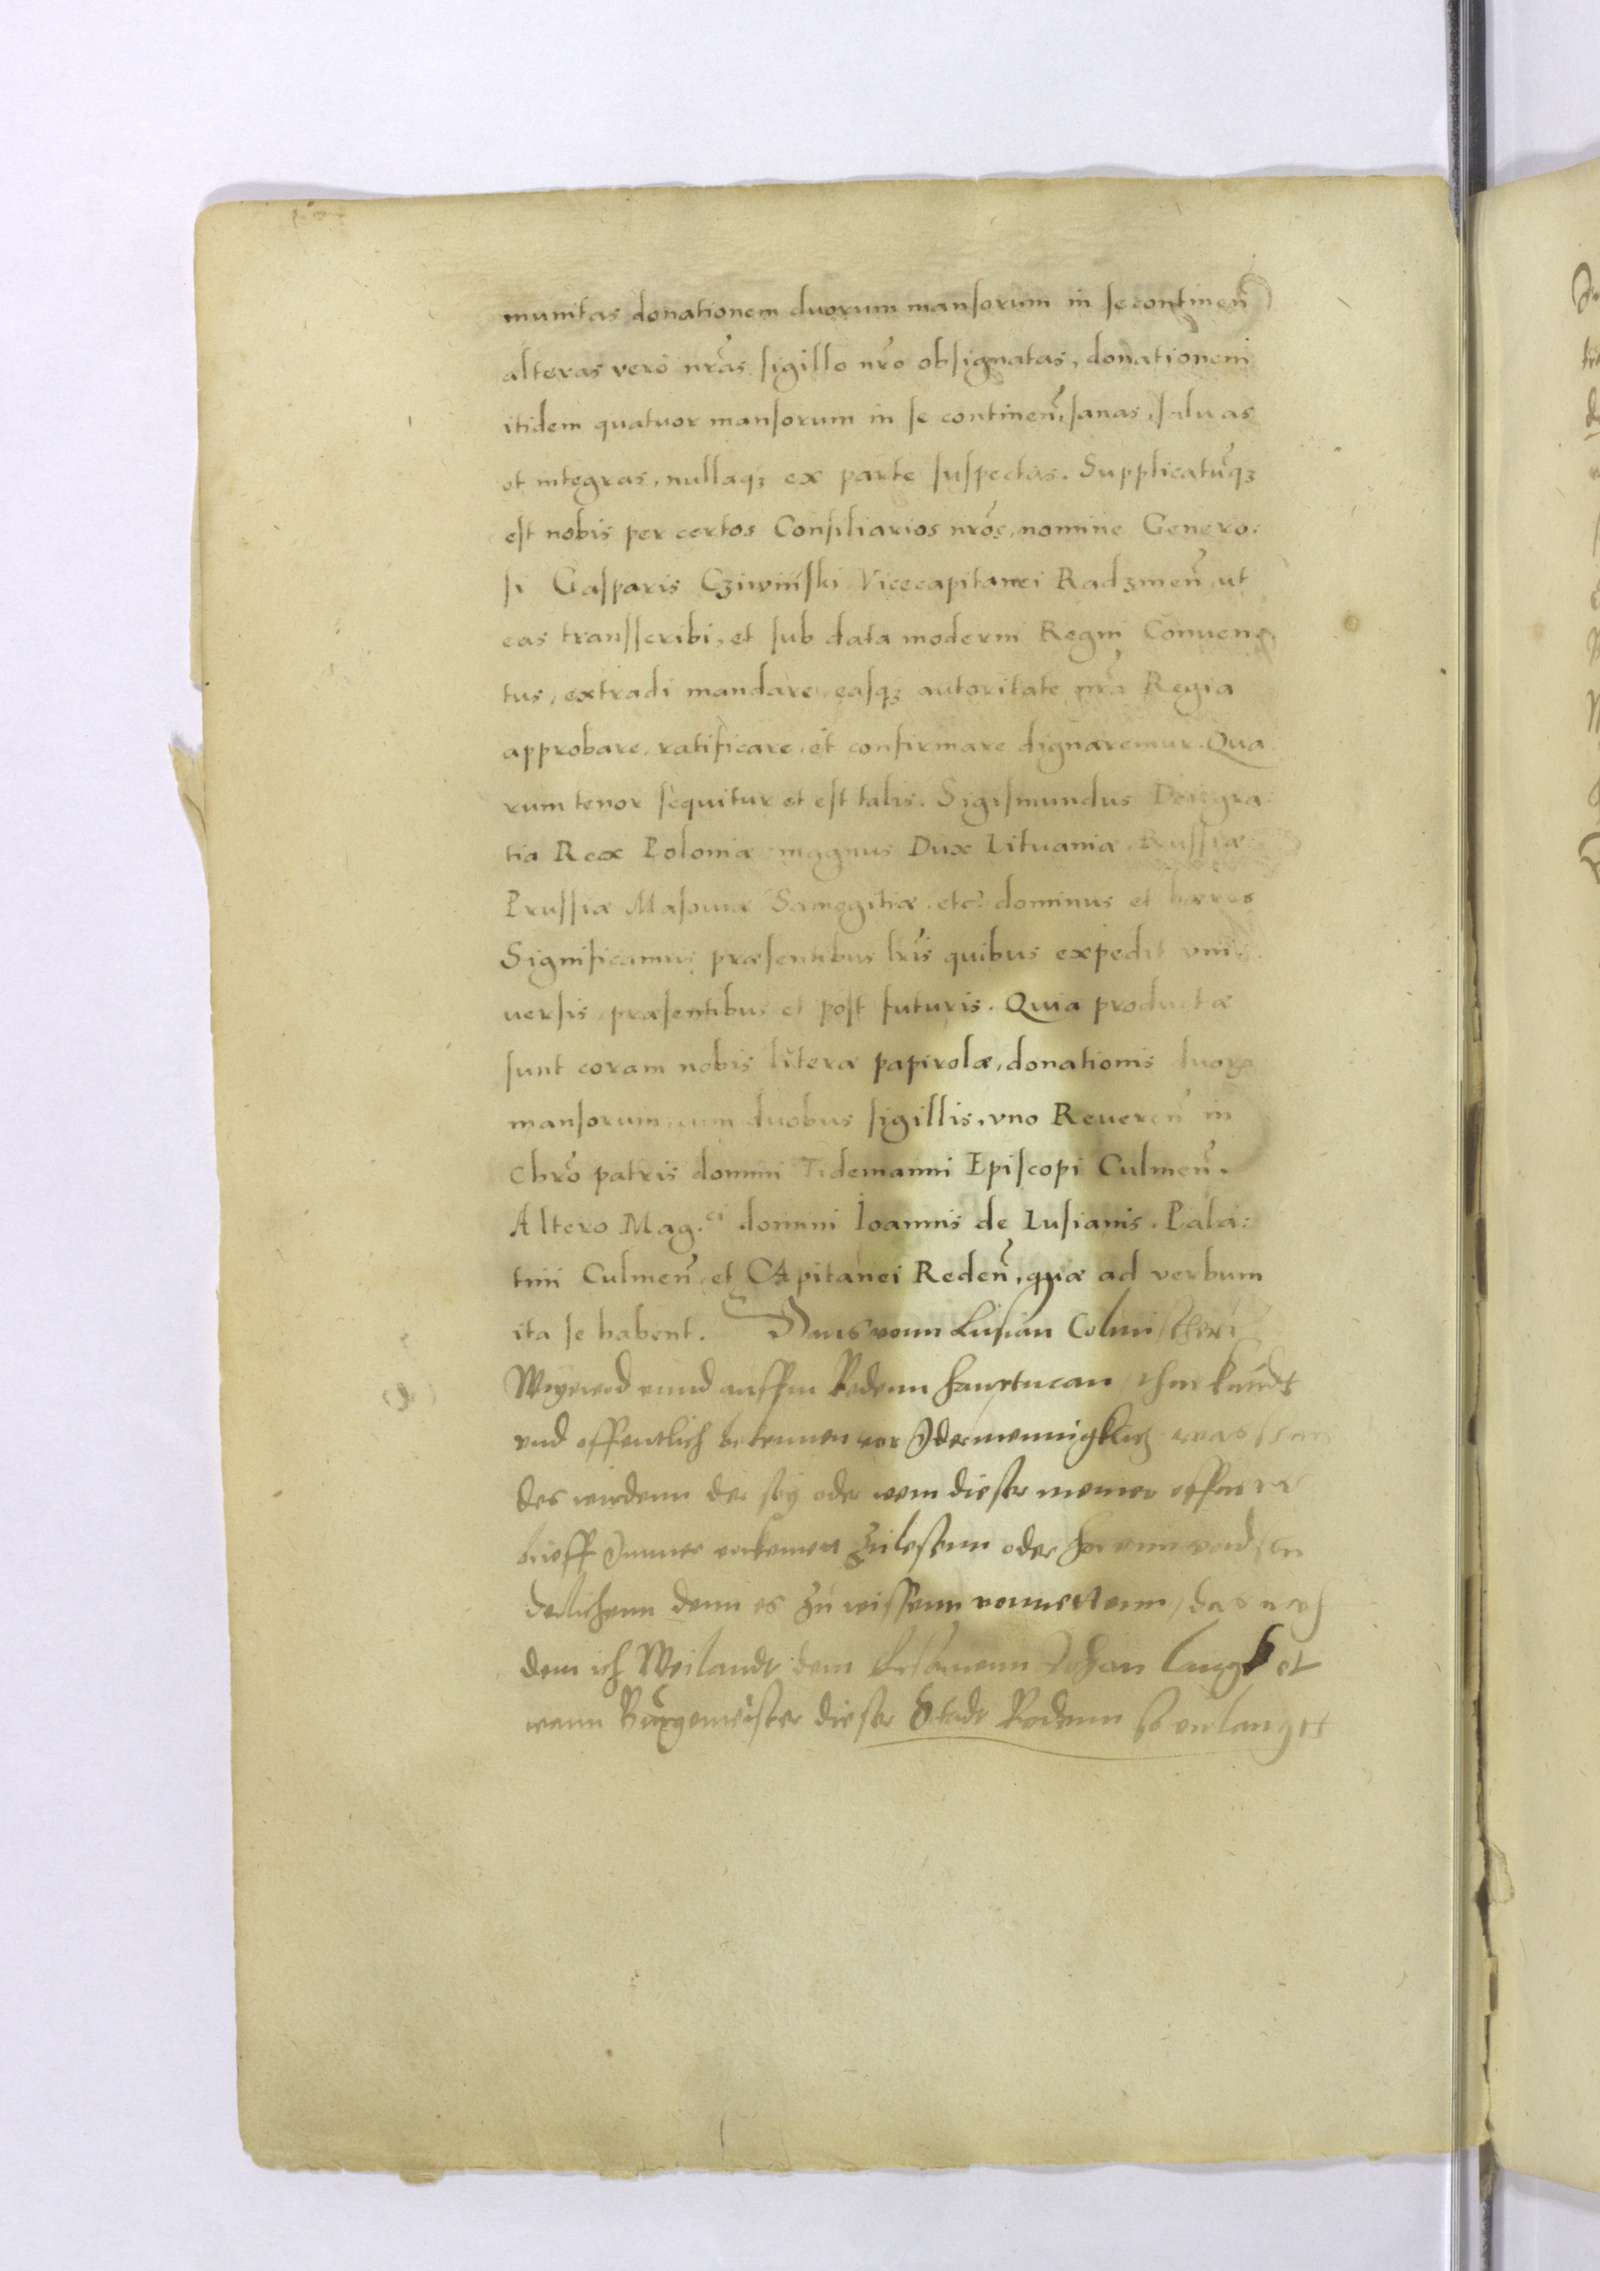 munitas donationem duorum mansorum in se continen̄
alteras vero nr̄as sigillo nr̄o obsignatas, donationem
itidem quatuor mansorum in se continen̄, sanas, saluas
et integras, nullaqꝫ ex parte suspectas. Supplicatūqꝫ
est nobis per certos Consiliarios nr̄os, nomine Genero:
si Gasparis Cziwiński Vicecapitanei Radzmen̄ ut
eas transscribi, et sub data moderni Regni Conuen
tus, extradi mandare, easqꝫ autoritate nr̄a Regia
approbare, ratificare, et confirmare dignaremur. Qua
rum tenor sequitur et est talis. Sigismundus Dei gra:
tia Rex Poloniæ magnus Dux Lituaniæ, Russiæ
Prussiæ Masouiæ Samogitiæ, etc? dominus et hæres
Significamus præsentibus lr̄is quibus expedit vni
uersis præsentibus et post futuris. Quia productæ
sunt coram nobis literæ papirolæ, donationis duoꝝ
mansorum, cum duobus sigillis, vno Reueren̄ in
Chr̄o patris domini Tidemanni Episcopi Culmen̄.
Altero Mag.ci domini Ioannis de Lusianis. Pala:
tini Culmen̄, et CApitanei Reden̄, quæ ad verbum
ita se habent. Hans vonn Lusian Colmischer
Woyewod vnnd auffm Redenn Hauptman, thue kundt
vnd offentlich bekennen vor Idermenniglich was stan
des wirdenn der sey oder wem dieser meiner offener
brieff Immer vorkomen zulesenn oder horenn
denn es zu wissenn vonnettenn, das noch
dem ich Weilandt dem Johan Lang et
wann Burgemeister dieser Stadt Redenn so vnlangst